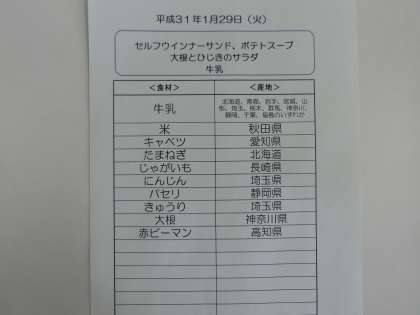 平成31年1月29日（火）
セルフウインナーサンド、ポテトスープ
大根とひじきのサラダ
牛乳
＜食材＞ ＜産地＞
牛乳 北海道、青森、岩手、宮城、山
形、埼玉、栃木、群馬、神奈川、
静岡、千葉、福島のいずれか
米 秋田県
キャベツ 愛知県
たまねぎ 北海道
じゃがいも 長崎県
にんじん 埼玉県
パセリ 静岡県
きゅうり 埼玉県
大根 神奈川県
赤ピーマン 高知県